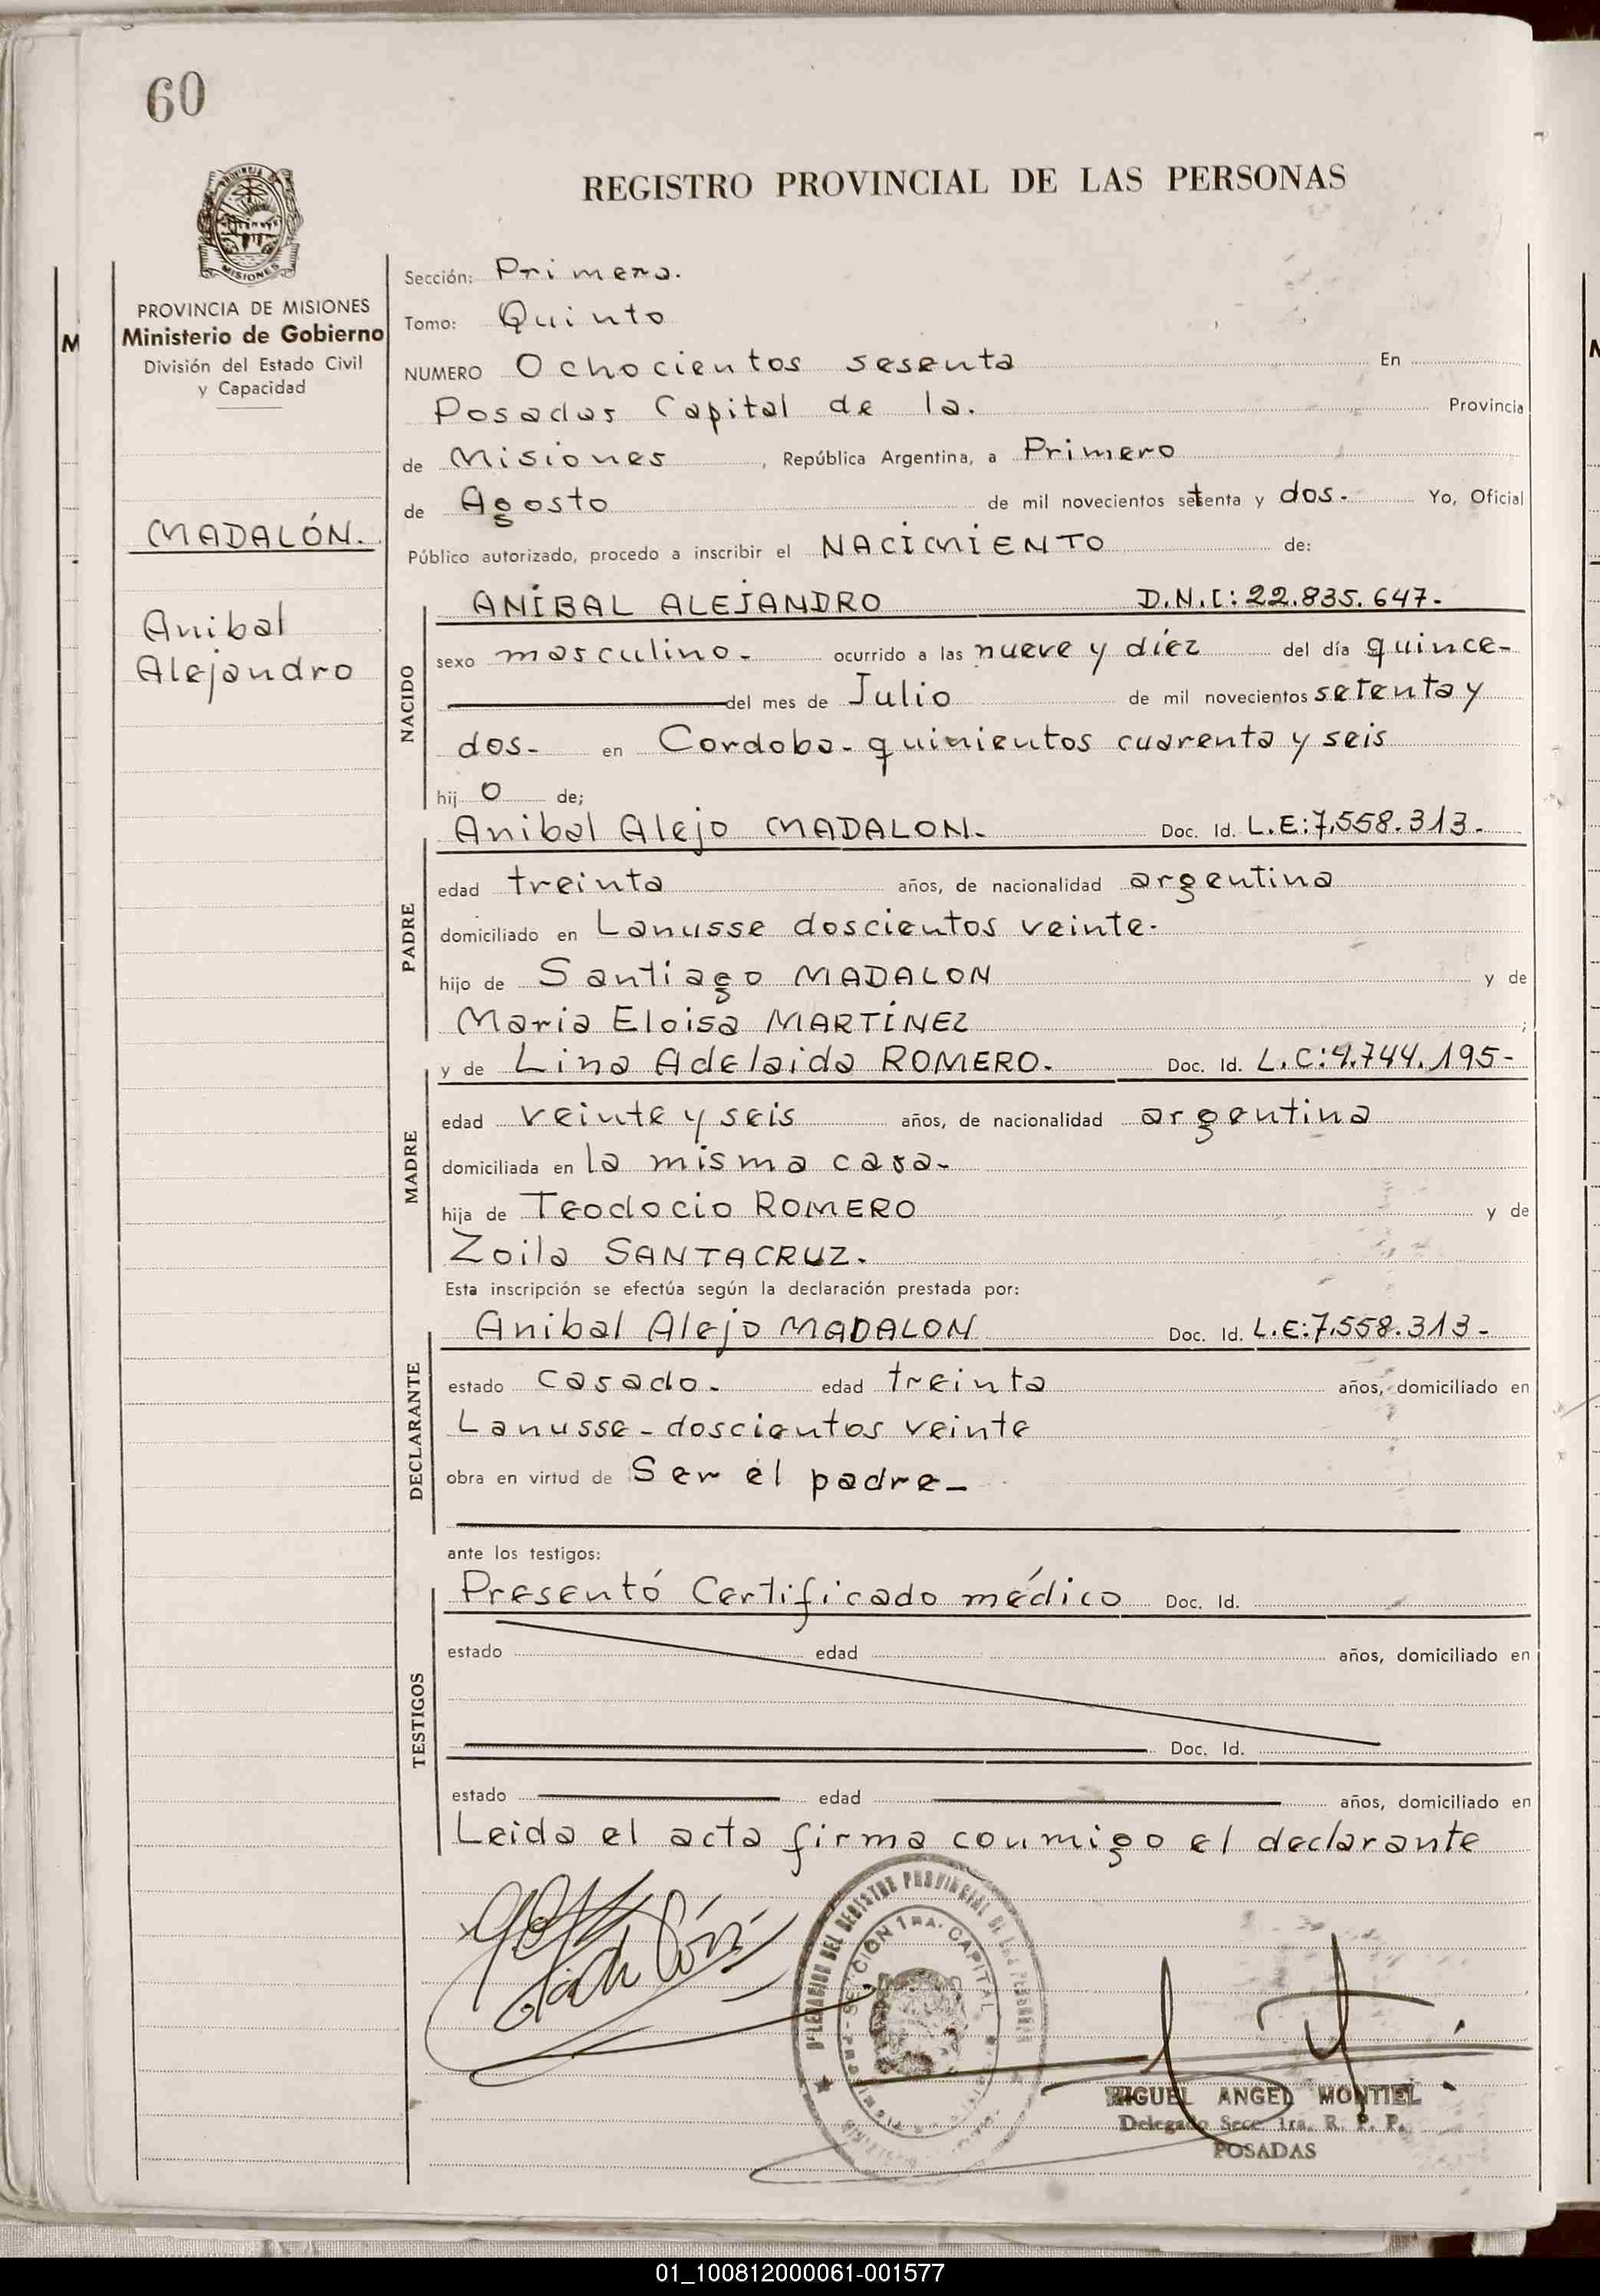 60
REGISTRO PROVINCIAL DE LAS PERSONAS
MISIONES
PROVINCIA DE MISIONES
Ministerio de Gobierno
División del Estado Civil
y Capacidad
MADALÓN.
Anibal
Alejandro
Sección: Primera.
Tomo: Quinto
NUMERO Ochocientos sesenta En
Posadas Capital de la. Provincia
de Misiones, República Argentina, a Primero
de Agosto de mil novecientos setenta y dos. Yo, Oficial
Público autorizado, procedo a inscribir el NACIMIENTO de:
NACIDO
ANÍBAL ALEJANDRO D.N.I: 22.835.647.-
sexo masculino.- ocurrido a las nueve y diez del día quince-
del mes de Julio de mil novecientos setenta y
dos- en Cordoba- quinientos cuarenta y seis
hijo de;
PADRE
Anibal Alejo MADALON.- Doc. Id. L.E:7.558.313.-
edad treinta años, de nacionalidad argentina
domiciliado en Lanusse doscientos veinte.
hijo de Santiago MADALON y de
Maria Eloisa MARTÍNEZ ;
MADRE
y de Lina Adelaida ROMERO. Doc. Id. L.C:4.744.195-
edad veinte y seis años, de nacionalidad argentina
domiciliada en la misma casa-
hija de Teodocio ROMERO y de
Zoila SANTACRUZ.
Esta inscripción se efectúa según la declaración prestada por:
DECLARANTE
Anibal Alejo MADALON Doc. Id. L.E:7.558.313-
estado casado. edad treinta años, domiciliado en
Lanusse-doscientos veinte
obra en virtud de Ser el padre-
ante los testigos:
TESTIGOS
Presentó Certificado médico Doc. Id.
estado edad años, domiciliado en
Doc. Id.
estado edad años, domiciliado en
Leida el acta firma conmigo el declarante
DELEGACION DEL REGISTRO PROVINCIAL DE LAS PERSONAS
SECCION 1RA. CAPITAL
MIGUEL ANGEL MONTIEL
Delegado Secc. 1ra. R. P. P.
POSADAS
01_100812000061-001577